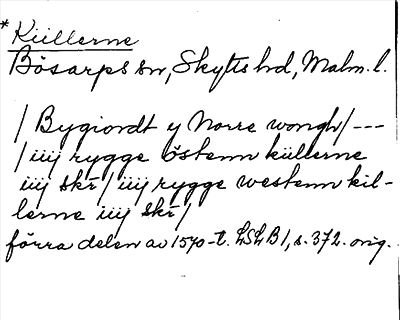 * Küllerne
Bösarps sn, Skytts hd, Malm. l.
/ Bygiordt y Norre wongh / ---
/ iiij rygge östenn küllerne
iiij skr / iiij rygge westenn kil-
lerne iiij skr /
förra delen av 1570-t. LSLB 1, s. 372. orig.